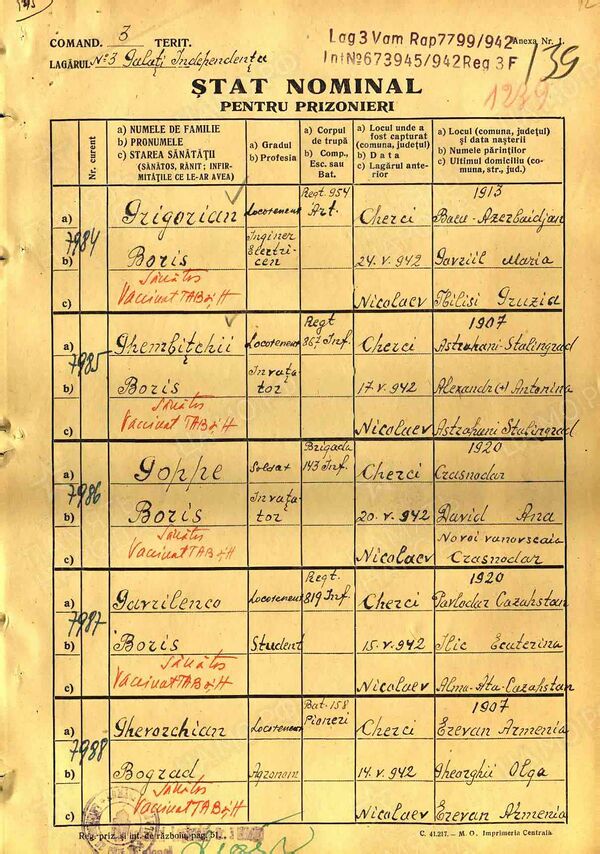 COMAND. 3 TERIT.
LAGĂRUL Nº3 Galați Independența
Lag 3 Vam Rap 7799/942
Int Nº 673945/942 Reg 3 F
Anexa Nr. 1.
139
1289
ŞTAT NOMINAL
PENTRU PRIZONIERI
Nr. curent
a) NUMELE DE FAMILIE
b) PRONUMELE
c) STAREA SĂNĂTĂŢII
(SĂNĂTOS, RĂNIT; INFIR-
MITĂŢILE CE LE-AR AVEA)
a) Gradul
b) Profesia
a) Corpul
de trupă
b) Comp.,
Esc. sau
Bat.
a) Locul unde a
fost capturat
(comuna, judeţul)
b) Data
c) Lagărul ante-
rior
a) Locul (comuna, judeţul)
şi data naşterii
b) Numele părinţilor
c) Ultimul domiciliu (co-
muna, str., jud.)
7984
a) Grigorian Locotenent Regt. 954 Art. Cherci 1913 Bacu-Azerbaidjan
b) Boris Inginer Electricen 24.V.942 Gavriil Maria
Sănătos
c) Vaccinat TAB și H Nicolaev Tbilisi Gruzia
7985
a) Ghembițchii Locotenent Regt 867 Inf. Cherci 1907 Astrahani-Stalingrad
b) Boris Invațator 17.V.942 Alexandr (+) Antonina
Sănătos
c) Vaccinat TAB și H Nicolaev Astrahani Stalingrad
7986
a) Goppe Soldat Brigada 143 Inf. Cherci 1920 Crasnodar
b) Boris Invațator 20.V.942 David Ana
Sănătos
c) Vaccinat TAB și H Nicolaev Novoi vanovscaia Crasnodar
7987
a) Gavrilenco Locotenent Regt. 819 Inf. Cherci 1920 Pavlodar Cazahstan
b) Boris Student 15.V.942 Ilie Ecaterina
Sănătos
c) Vaccinat TAB și H Nicolaev Alma-Ata-Cazahstan
7988
a) Ghevorchian Locotenent Bat. 158 Pioneri Cherci 1907 Erevan Armenia
b) Bograd Agronom 14.V.942 Gheorghii Olga
Sănătos
c) Vaccinat TAB și H Nicolaev Erevan Armenia
Reg. priz. şi int. de războiu, pag. 51.
C. 41.217. — M. O. Imprimeria Centrală.